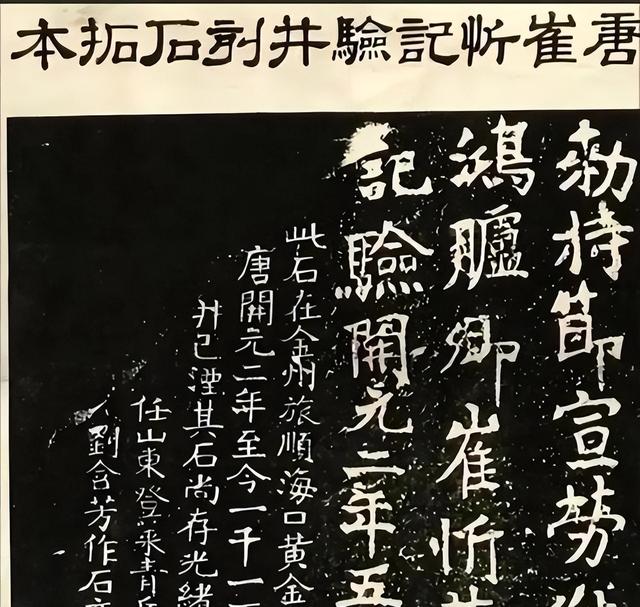 唐崔忻記驗井刻石拓本
勅持節宣勞
鴻臚卿崔忻井
記驗開元二年五
此石在金州旅順海口黃金
唐開元二年至今一千一百
井已湮其石尚存光緒
任山東登萊青兵
人劉含芳作石